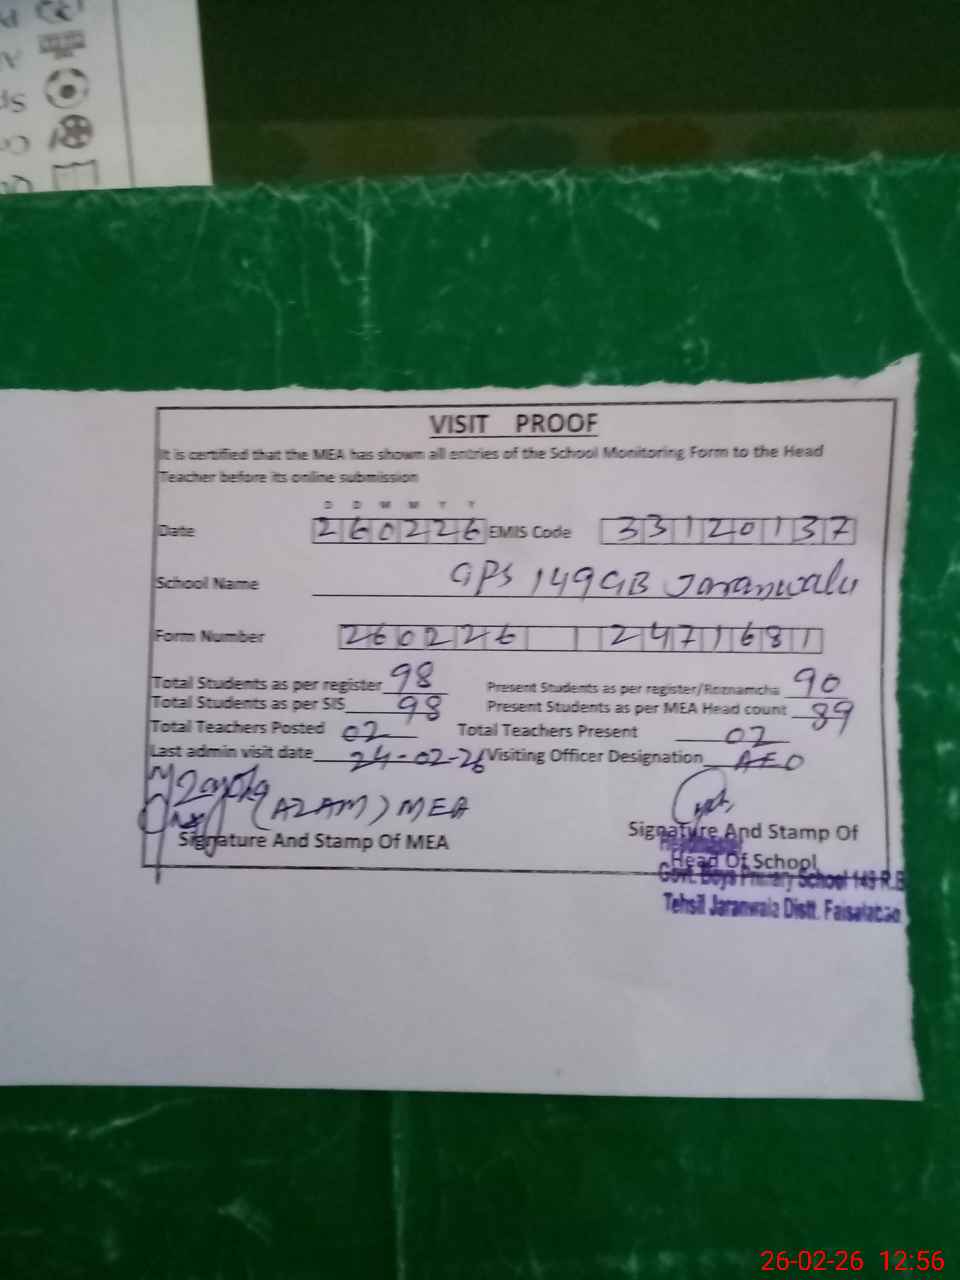 VISIT PROOF
It is certified that the MEA has shown all entries of the School Monitoring Form to the Head
Teacher before its online submission
D D M M Y Y
Date 260226 EMIS Code 33120137
School Name GPS 149 GB Jaranwala
Form Number 260226 1 2471681
Total Students as per register 98 Present Students as per register/Roznamcha 90
Total Students as per SIS 98 Present Students as per MEA Head count 89
Total Teachers Posted 02 Total Teachers Present 02
Last admin visit date 24-02-26 Visiting Officer Designation AEO
(AZAM) MEA
Signature And Stamp Of MEA Signature And Stamp Of
Head Of School
Govt. Boys Primary School 149 R.B
Tehsil Jaranwala Distt. Faisalabad
26-02-26 12:56